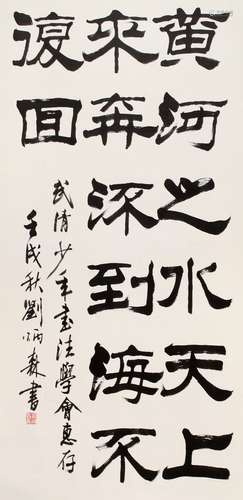 黄河之水天上
來奔流到海不
復回
武清少年書法學會惠存
壬戌秋劉炳森書